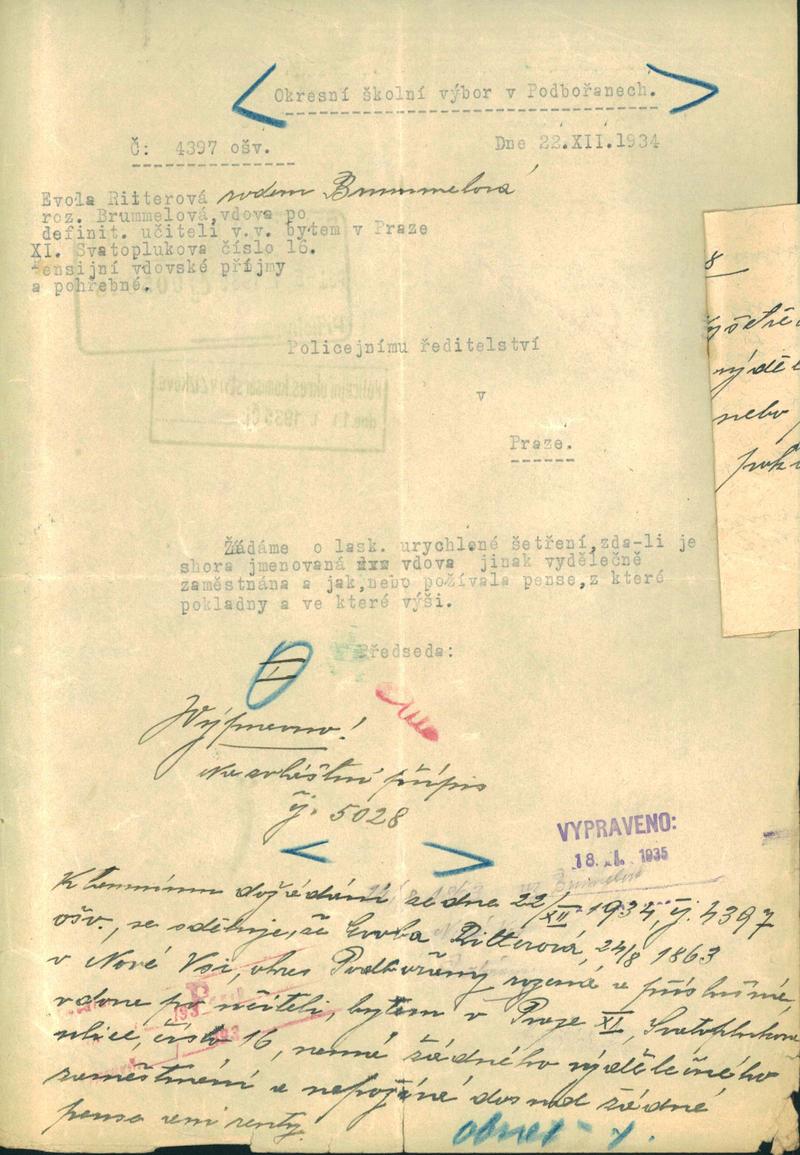 Okresní školní výbor v Podbořanech.
Č: 4397 ošv.
Dne 22.XII.1934
Evola Ritterová rodem Brummelová
roz. Brummelová,vdova po
definit. učiteli v.v. bytem v Praze
XI. Svatoplukova číslo 16.
Pensijní vdovské příjmy
a pohřebné.
Policejnímu ředitelství
v
Praze.
8
nebo
Žádáme o lask. urychlené šetření,zda-li je
shora jmenovaná vdova jinak vydělečně
zaměstnána a jak,nebo požívala pense,z které
pokladny a ve které výši.
Předseda:
II
Výpravno!
Na zvláštní přípis
čj. 5028
VYPRAVENO:
18. I. 1935
K tamnímu dožádání ze dne 22/XII 1934, čj. 4397
ošv., se sděluje, že Ritterová, 24/8 1863
v Nové Vsi, okres Podbořany rozená a příslušná,
vdova po učiteli, bytem v Praze XI, Svatoplukova
ulice, číslo 16, nemá žádného výdělečného
zaměstnání a nepožívá dosud žádné
pense ani renty.